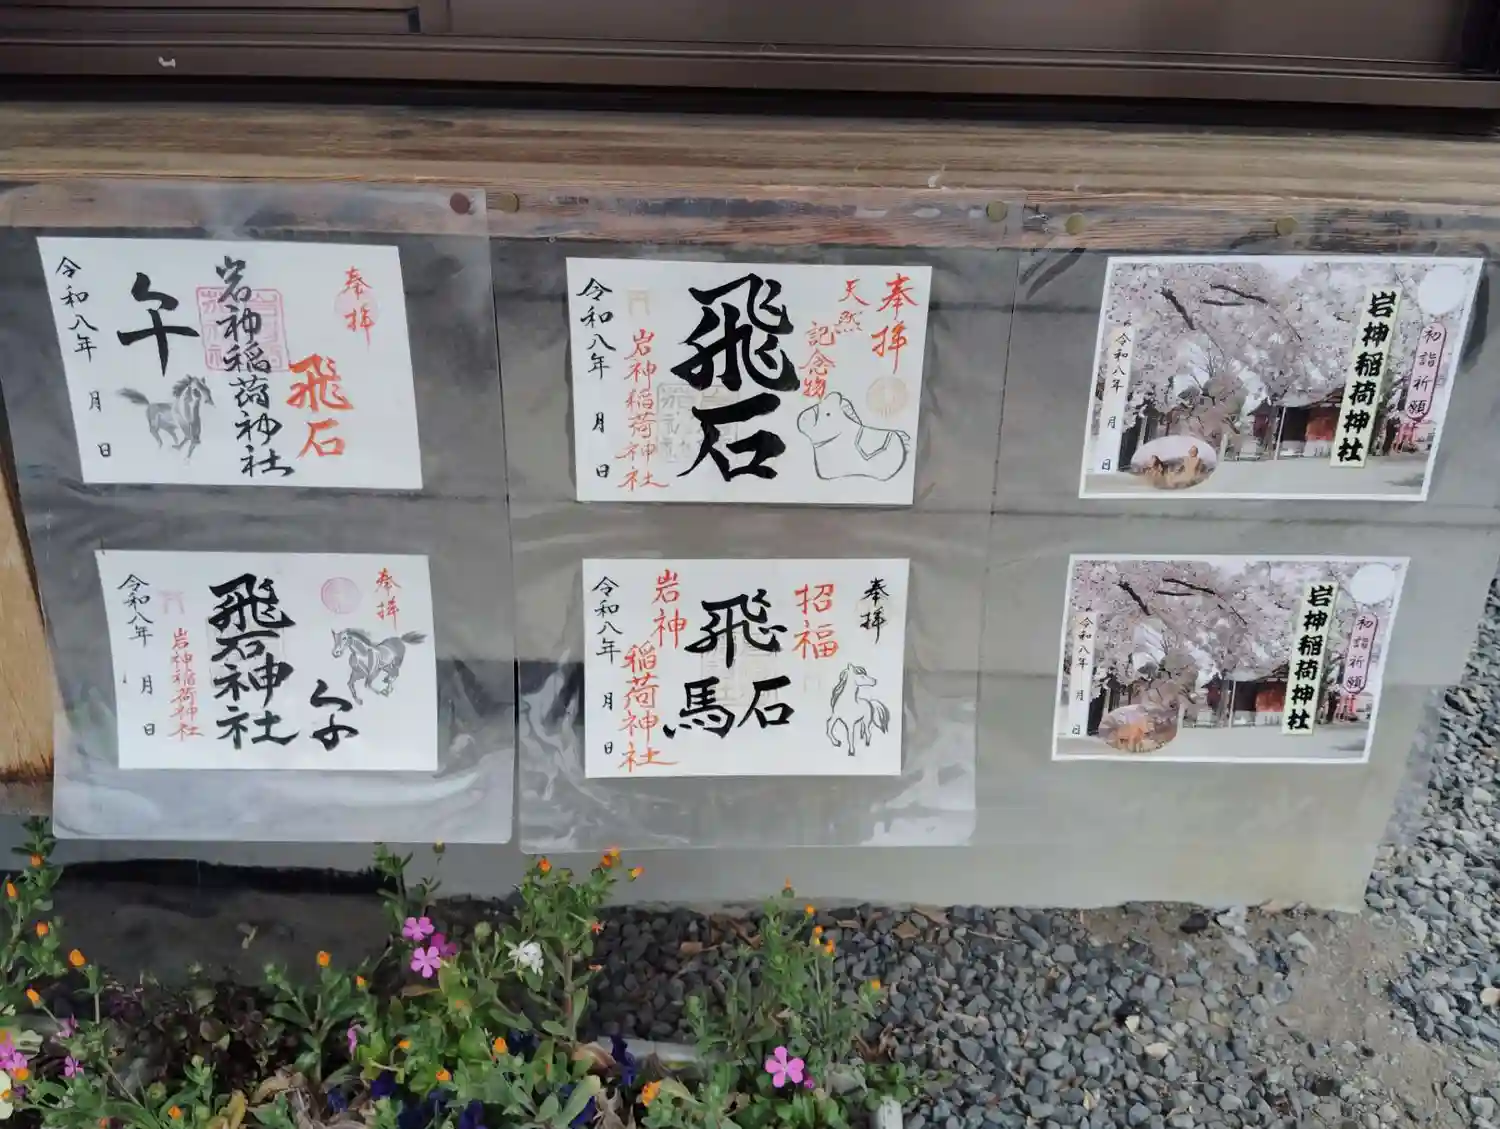 奉拝
飛石
岩神稲荷神社
午
令和八年
月
日
奉拝
天然
記念物
飛石
岩神稲荷神社
令和八年
月
日
初詣祈願
岩神稲荷神社
令和八年
月
日
奉拝
午
飛石神社
岩神稲荷神社
令和八年
月
日
奉拝
招福
飛石
馬
岩神
稲荷神社
令和八年
月
日
初詣祈願
岩神稲荷神社
令和八年
月
日